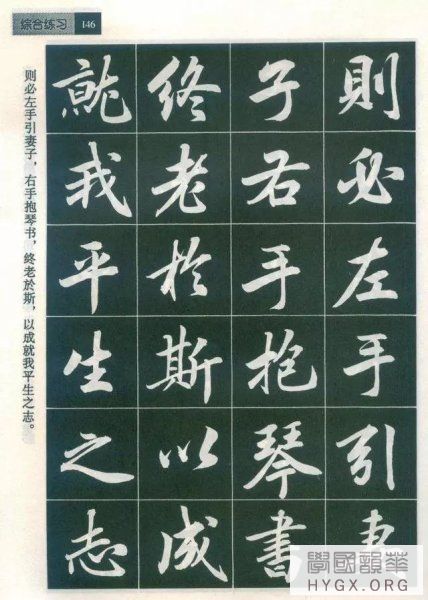 综合练习 146
則必左手引妻
子右手抱琴書
終老於斯以成
就我平生之志
则必左手引妻子，右手抱琴书，终老於斯，以成就我平生之志。
華韻國學
HYGX.ORG